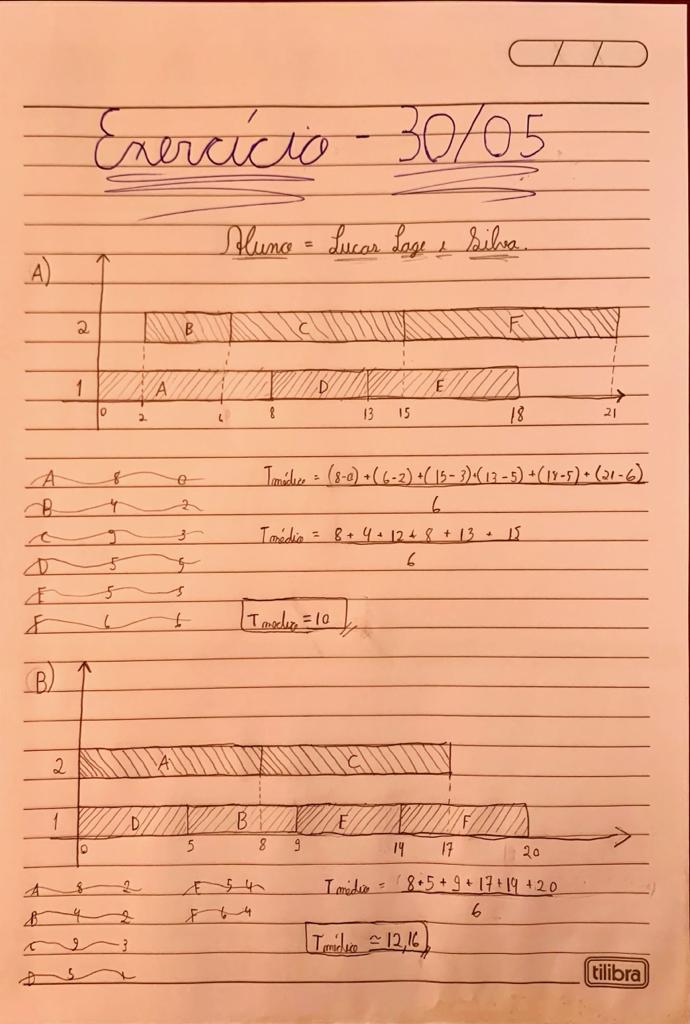 / /
Exercício - 30/05
Aluno = Lucas Lage e Silva.
A)
2 B C F
1 A D E
0 2 6 8 13 15 18 21
A 8 0
B 4 2
C 9 3
D 5 5
E 5 5
F 6 6
Tmédio = (8-0)+(6-2)+(15-3)+(13-5)+(18-5)+(21-6)
6
Tmédio = 8+4+12+8+13+15
6
Tmédio = 10
B)
2 A C
1 D B E F
0 5 8 9 14 17 20
A 8 2 E 5 4
B 4 2 F 6 4
C 9 3
D 5
Tmédio = 8+5+9+17+14+20
6
Tmédio ≃ 12,16
tilibra